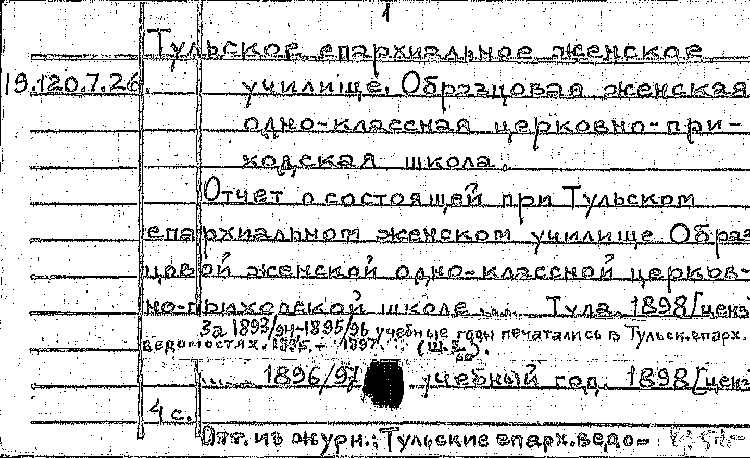 1
Тульское епархиальное женское
19.120.7.26. училище. Образцовая женская
одно-классная церковно-при-
ходская школа.
Отчет о состоящей при Тульском
епархиальном женском училище Образ
цовой женской одно-классной церков-
но-приходской школе .... Тула. 1898 [ценз
За 1893/94-1895/96 учебные годы печатались в Тульск. епарх.
ведомостях. - 1897
.... 1896/97 учебный год. 1898 [ценз
4 с.
Отт. из журн.: Тульские епарх. ведо-